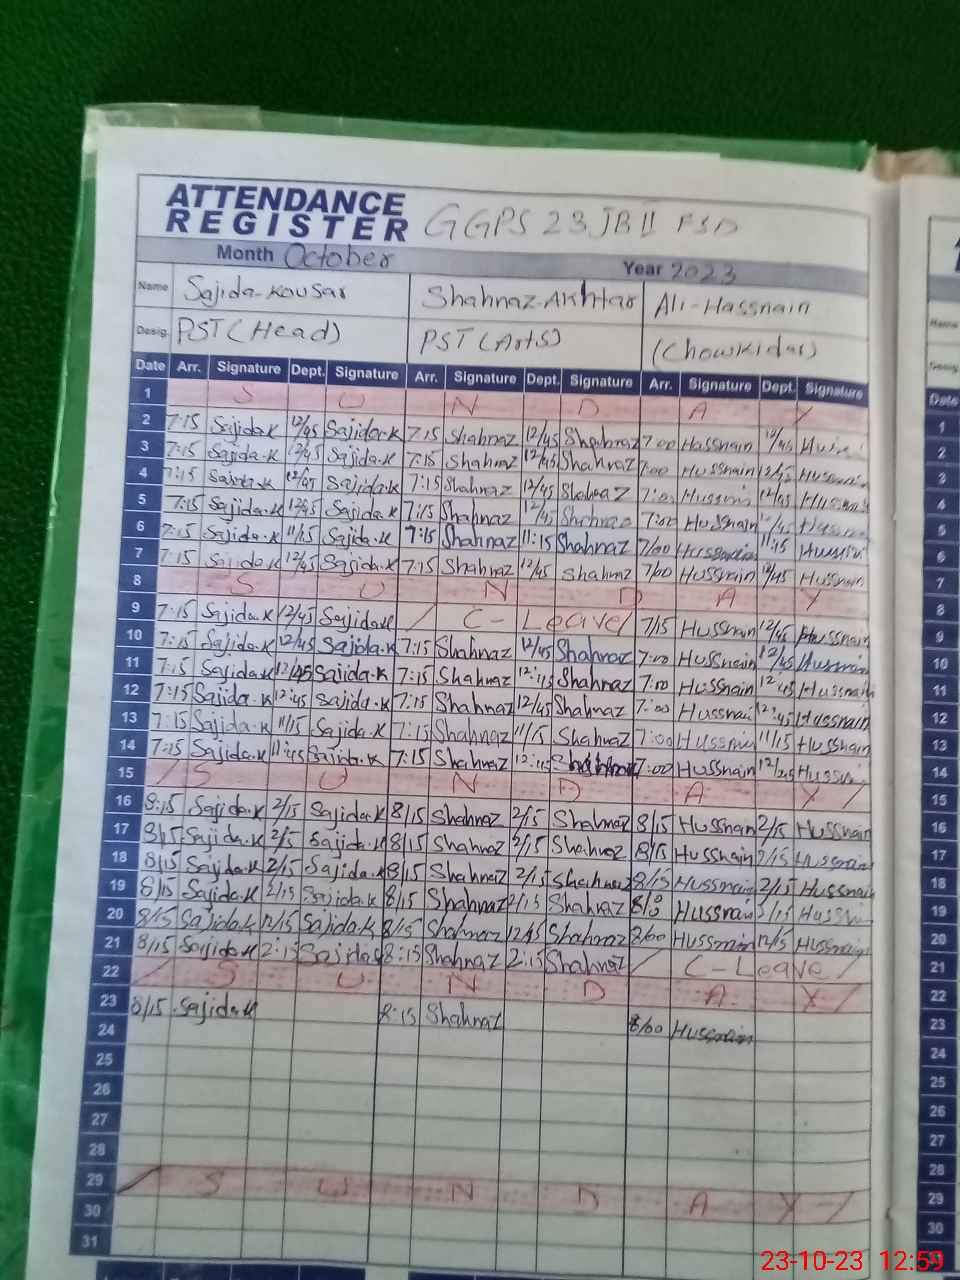 ATTENDANCE
REGISTER GGPS 23 JB II FSD
Month October Year 2023
Name Sajida-Kousar Shahnaz-Akhtar Ali-Hassnain
Desig. PST (Head) PST (Arts) (Chowkidar)
Date Arr. Signature Dept. Signature Arr. Signature Dept. Signature Arr. Signature Dept. Signature
1 S U N D A Y
2 7:15 Sajida.K 12/45 Sajida.K 7:15 Shahnaz 12/45 Shahnaz 7:00 Hassnain 12/45
3 7:15 Sajida.K 12/45 Sajida.K 7:15 Shahnaz 12/45 Shahnaz 7:00 Hussnain 12/45
4 7:15 Sajida.K 12/45 Sajida.K 7:15 Shahnaz 12/45 Shahnaz 7:00 12/45
5 7:15 Sajida.K 12/45 Sajida.K 7:15 Shahnaz 12/45 Shahnaz 7:00 Hussnain 12/45
6 7:15 Sajida.K 11/15 Sajida.K 7:15 Shahnaz 11:15 Shahnaz 7/00 Hussnain 11:15
7 7:15 Sajida.K 12/45 Sajida.K 7:15 Shahnaz 12/45 Shahnaz 7/00 Hussnain 12/45 Hussnain
8 S U N D A Y
9 7:15 Sajida.K 12/45 Sajida.K / C-Leave / 7/15 Hussnain 12/45 Hussnain
10 7:15 Sajida.K 12/45 Sajida.K 7:15 Shahnaz 12/45 Shahnaz 7:00 Hussnain 12/45 Hussnain
11 7:15 Sajida.K 12/45 Sajida.K 7:15 Shahnaz 12:45 Shahnaz 7:00 Hussnain 12:45 Hussnain
12 7:15 Sajida.K 12:45 Sajida.K 7:15 Shahnaz 12/45 Shahnaz 7:00 Hussnai 12:45 Hussnain
13 7:15 Sajida.K 11/15 Sajida.K 7:15 Shahnaz 11/15 Shahnaz 7:00 11/15 Hussnain
14 7:15 Sajida.K Sajida.K 7:15 Shahnaz 12:45 7:00 Hussnain 12/45
15 / S U N D A Y /
16 8:15 Sajida.K 2/15 Sajida.K 8/15 Shahnaz 2/15 Shahnaz 8/15 Hussnain 2/15 Hussnain
17 8/15 Sajida.K 2/15 Sajida.K 8/15 Shahnaz 2/15 Shahnaz 8/15 Hussnain 2/15 Hussnain
18 8/15 Sajida.K 2/15 Sajida.K 8/15 Shahnaz 2/15 Shahnaz 8/15 Hussnain 2/15 Hussnain
19 8/15 Sajida.K 2/15 Sajida.K 8/15 Shahnaz 2/15 Shahnaz Hussnain
20 8/15 Sajida.K 12/15 Sajida.K 8/15 Shahnaz Shahnaz 8/00 Hussnain 12/15 Hussnain
21 8/15 Sajida.K 2:15 Sajida.K 8:15 Shahnaz 2:15 Shahnaz / C-Leave /
22 / S U N D A Y /
23 8/15 Sajida.K 8:15 Shahnaz 8/00 Hussnain
24
25
26
27
28
29 / S U N D A Y /
30
31
Date
1
2
3
4
5
6
7
8
9
10
11
12
13
14
15
16
17
18
19
20
21
22
23
24
25
26
27
28
29
30
23-10-23 12:59